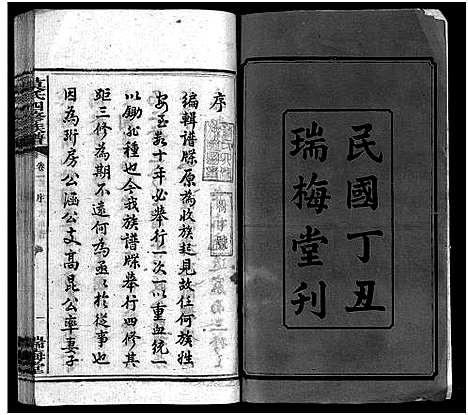 民國丁丑
瑞梅堂刊
序
編輯譜牒原為收族起見故任何族姓
安玉數十年必舉行一次一以重血統一
以鋤非種也今我族譜牒舉行四修其
距三修為期不遠何為亟於從事也
因為珩房公涵公支高昆公率妻子
氏四修族譜
卷
序
一
瑞梅堂